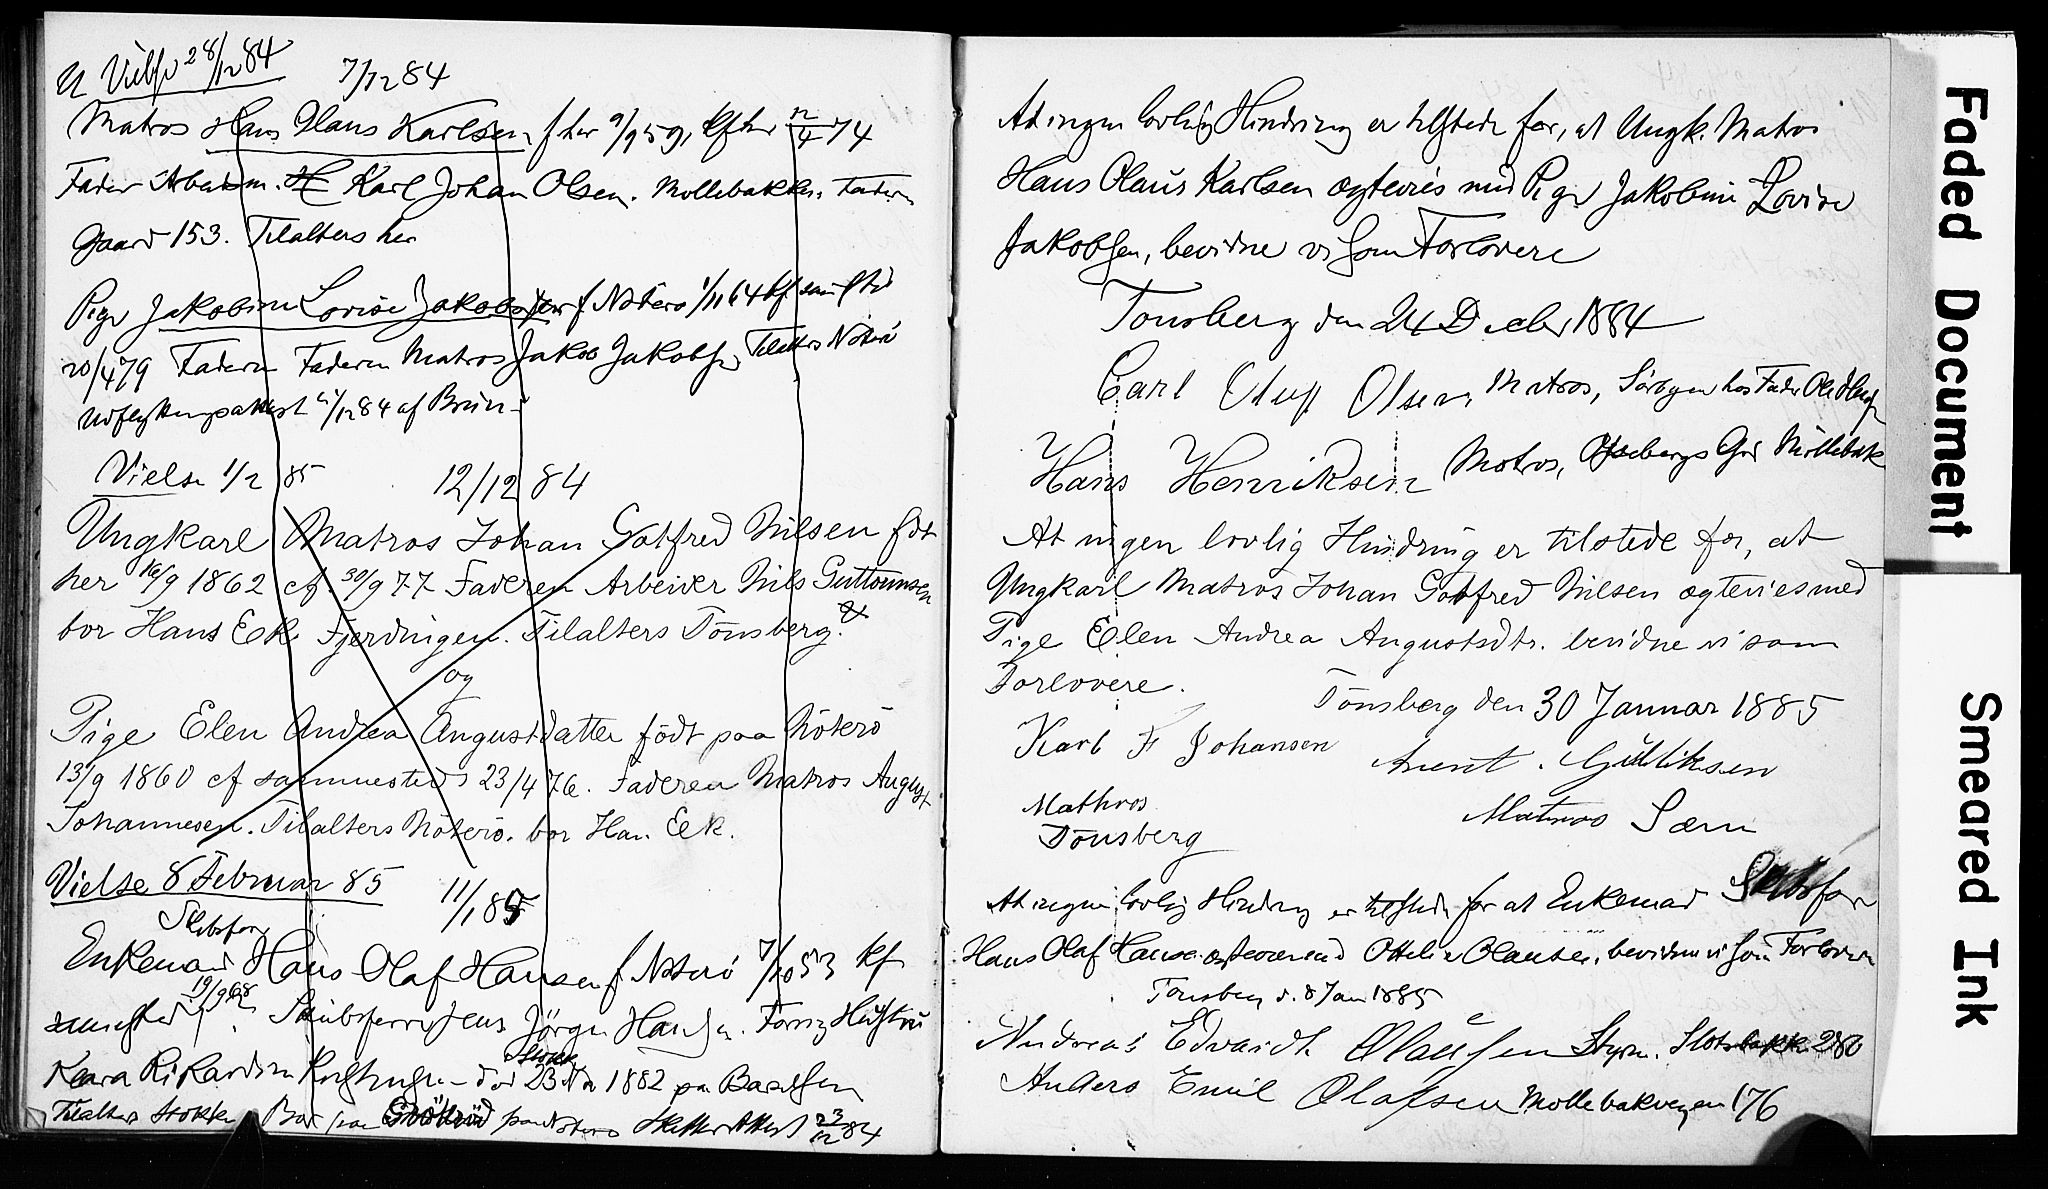 Vielse 28/12 84
7/12 84
Matros Hans Olaus Karlsen f her 9/9 59, kf her 12/4 74
Fader Arbeidsm. Karl Johan Olsen. Mollebakken. Faderen
Gaard 153. Tilalters her
Pige Jakobine Lovise Jakobsen f Nøterø 1/11 64 kf samsteds
20/4 79 Faderen Matros Jakob Jakobsen Tilalters Nøterö
Udflytningsattest /12 84 af Brun
Vielse 1/2 85
12/12 84
Ungkarl Matros Johan Gotfred Nilsen födt
her 16/9 1862 cf. 30/9 77 Faderen Arbeider Nils Guttormsen
bor Hans Eek Fjerdingen. Tilalters Tönsberg.
og
Pige Elen Andrea Augustdatter födt paa Nöterö
13/9 1860 cf sammesteds 23/4 76. Faderen Matros August
Johannesen. Tilalters Nöterö. bor Han. Eek.
Vielse 8 Februar 85
11/1 85
Skibsfører
Enkemand Hans Olaf Hansen f. Nøterö 7/10 53 kf
samsteds 19/9 68 Skibsfører Jens Jörgen Hansen. Forrige Hustru
Kaara Rikardine död Stokke 23 Nov 1882 paa
Tilalters Stokke Bor paa paa Nøterö Skifte Attest 23/12 84
At ingen lovlig Hindring er tilstede for, at Ungk. Matros
Hans Olaus Karlsen ægtevies med Pige Jakobine Lovise
Jakobsen, bevidne vi som Forlovere
Tonsberg den 24 Decber 1884
Carl Oluf Olsen, Matros, Sörbyen hos Fader
Hans Henriksen Matros, Mollebak
At ingen lovlig Hindring er tilstede for, at
Ungkarl Matros Johan Gotfred Nilsen ægtevies med
Pige Elen Andrea Augustsdtr. bevidne vi som
Forlovere.
Tönsberg den 30 Januar 1885
Karl F Johansen
Arent. Gulliksen
Mathros
Matros Sæm
Tönsberg
At ingen lovlig Hindring er tilstede for at Enkemand Skibsfører
Hans Olaf Hansen ægtevies med Ottelie Olausen, bevidne vi som Forlovere
Tonsberg d. 8 Jan 1885
Andreas Edvardt Olausen Styrm. Slotsbakken 280
Anders Emil Olafsen Mollebakvegen 176
Faded Document
Smeared Ink